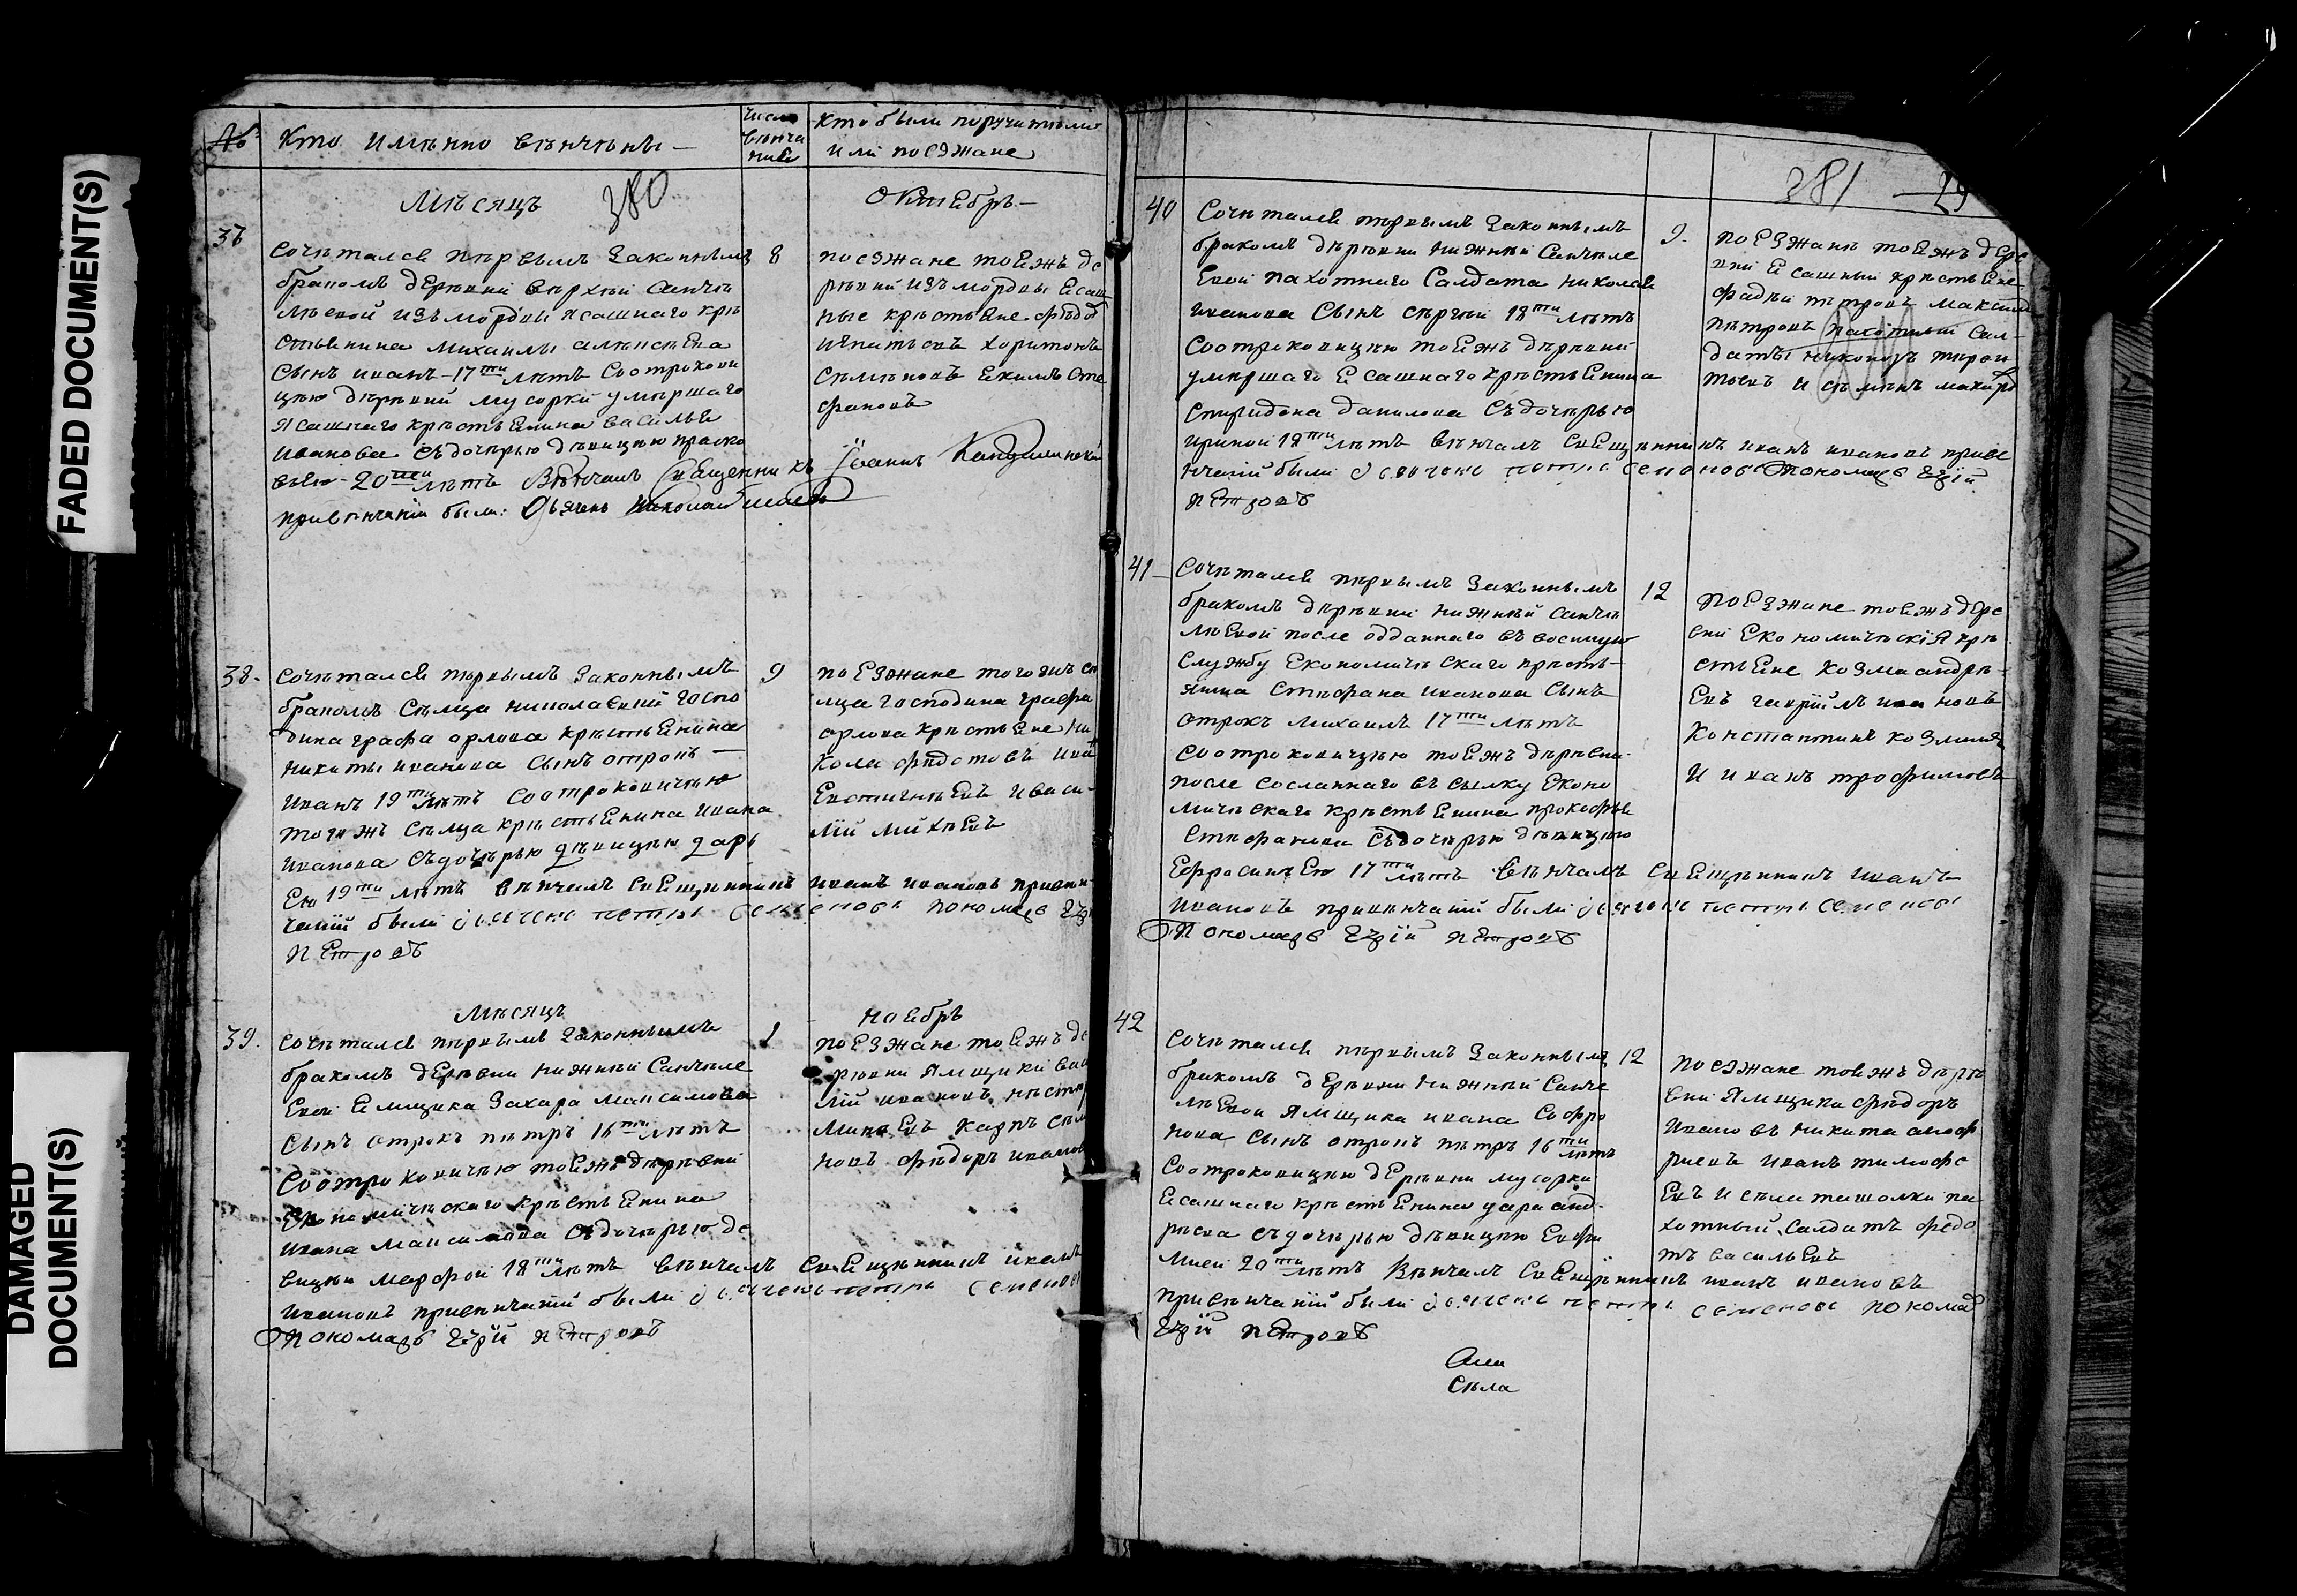 FADED DOCUMENT(S)
DAMAGED
DOCUMENT(S)
№
Кто имѣнно вѣнчѣны —
число
вѣнча
нія
Кто были поручитѣли
или поезжане
Мѣсяцъ
380
Октябрь —
37
Сочѣтался пѣрвымъ законнымъ
бракомъ дерѣвни вѣрхней санчѣ
лѣевой изъ мордвы ясашнаго крѣ
стьянина михаилы алѣксѣева
сынъ иванъ — 17ти лѣтъ соотрокови
цею дѣрѣвни мусорки умѣршаго
ясашнаго крѣстьянина василья
иванова сѣдочѣрью дѣвицею праско
вьею — 20ти лѣтъ Вѣнчалъ Священникъ Іоаннъ
привѣнчаніи были: Дьячекъ Николай
8
поезжане тояжъ де
рѣвни изъ мордвы ясаш
ные крѣстьяне фѣдоръ
игнатьевъ харитонъ
сѣмѣновъ екимъ сте
фановъ
38.
Сочѣтался пѣрвымъ законнымъ
бракомъ сѣлца николаевки госпо
дина графа орлова крѣстьянина
никиты иванова сынъ отрокъ —
иванъ 19ти лѣтъ соотроковицею
тогожъ сѣлца крѣстьянина ивана
иванова сѣдочѣрью дѣвицею дарь
ею 19ти лѣтъ вѣнчалъ священникъ иванъ ивановъ привѣн
чаніи были дьячекъ петръ семеновъ пономарь
петровъ
9
поезжане тогожъ сѣ
лца господина графа
орлова крѣстьяне ни
кола фѣдотовъ иванъ
евстигнѣевъ и васи-
лій михѣевъ
Мѣсяцъ
ноябрь
39.
Сочѣтался пѣрвымъ законнымъ
бракомъ дерѣвни нижней санчѣле
евой ямщика захара максимова
сынъ отрокъ пѣтръ 16ти лѣтъ
соотроковицею тояжъ дѣрѣвни
економичѣскаго крѣстьянина
ивана максимова сѣдочѣрью дѣ
вицею марфой 18ти лѣтъ вѣнчалъ священникъ иванъ
ивановъ привѣнчаніи были дьячекъ петръ семеновъ
пономарь петровъ
1
поезжане тояжъ де
рѣвни ямщики васи
лій ивановъ нѣстеръ
минаевъ карпъ сѣмѣ
новъ фѣдоръ ивановъ
381
40
Сочѣтался пѣрвымъ законнымъ
бракомъ дѣрѣвни нижней санчѣле
евой пахотнаго салдата николая
иванова сынъ сѣргѣй 18ти лѣтъ
соотроковицею тояжъ дѣрѣвни
умѣршаго ясашнаго крѣстьянина
спиридона данилова сѣдочѣрью
ириной 18ти лѣтъ вѣнчалъ священникъ иванъ ивановъ привѣ
нчаніи были дьячекъ петръ семеновъ пономарь
петровъ
9.
поезжане тояжъ дере
вни ясашныи крѣстьяне
фадѣй пѣтровъ максимъ
пѣтровъ пахотныи сал-
даты
и сѣмѣнъ
41 —
Сочѣтался пѣрвымъ законнымъ
бракомъ дѣрѣвни нижней санчѣ
лѣевой после одданнаго въ воинскую
службу економичѣскаго крѣсть-
янина стѣфана иванова сынъ
отрокъ михаилъ 17ти лѣтъ
соотроковицею тояжъ дѣрѣвни
после сосланнаго въ сылку еконо
мичѣскаго крѣстьянина прокофья
стѣфанова сѣдочѣрью дѣвицею
ефросиньею 17ти лѣтъ вѣнчалъ священникъ иванъ
ивановъ привѣнчаніи были дьячекъ петръ семеновъ
пономарь петровъ
12
поезжане тояжъ дере
вни економичѣскія крѣ
стьяне козма андрѣ-
евъ гаврійлъ ивановъ
константинъ козминъ
и иванъ трофимовъ
42
Сочѣтался пѣрвымъ законнымъ
бракомъ дѣрѣвни нижней санче
лѣевои ямщика ивана софро
нова сынъ отрокъ пѣтръ 16ти лѣтъ
соотроковицею дерѣвни мусорки
ясашнаго крѣстьянина
сѣдочѣрью дѣвицею евфи
миеи 20ти лѣтъ Вѣнчалъ священникъ иванъ ивановъ
привѣнчаніи были дьячекъ петръ семеновъ пономарь
петровъ
12
поезжане тояжъ дѣрѣ
вни ямщики фѣдоръ
ивановъ никита
иванъ тимофе
евъ и сѣла ташолки па
хотный салдатъ федо
тъ васильевъ
сѣла